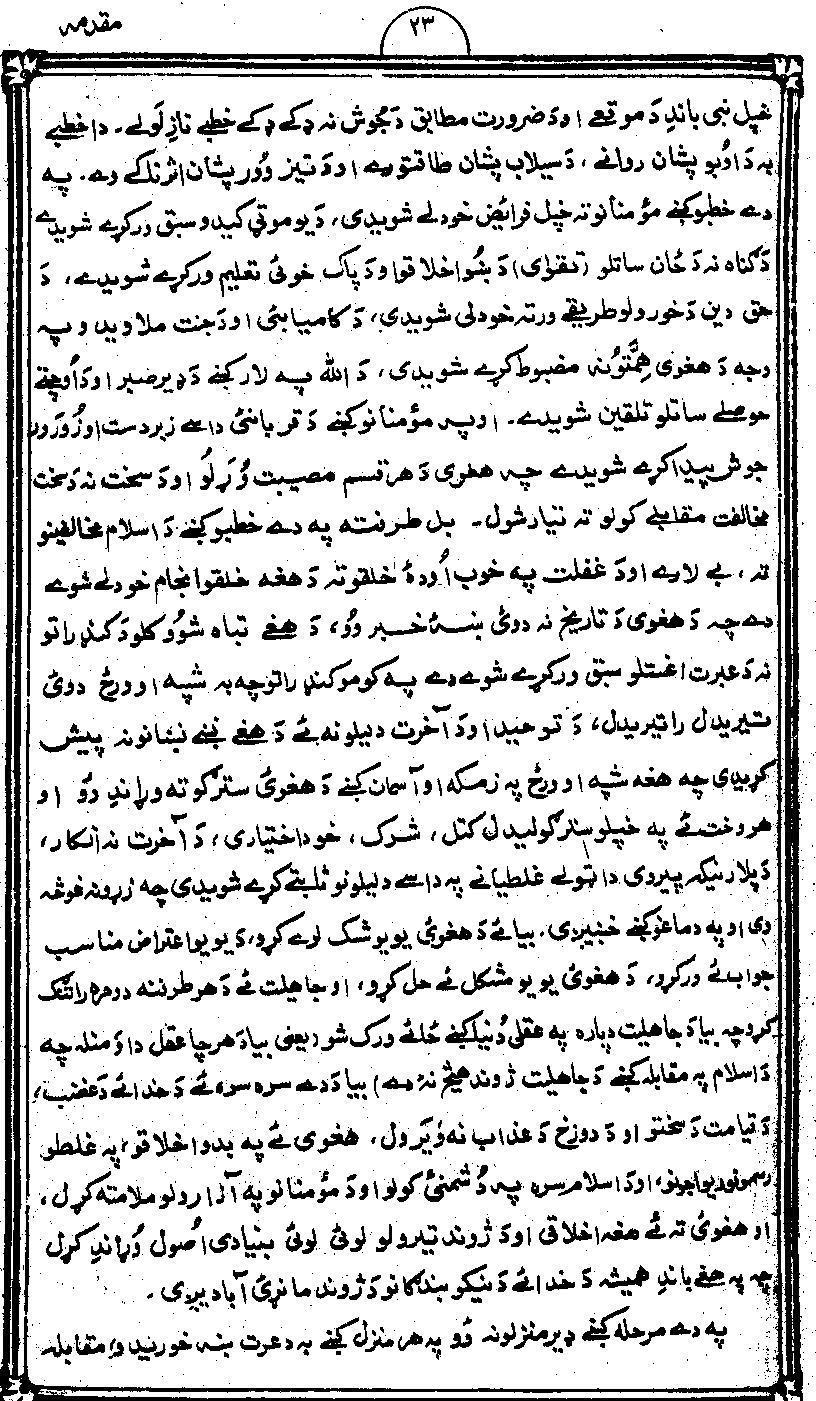 مقدمه
۲۳
خپل نبی باندِ دَ موقعے او دَ ضرورت مطابق دَ جوش نه ډکے ډکے خطبے نازِلولے۔ دا خطبے
په دَ اوُبو پشان روانے، دَ سیلاب پشان طاقتورے او دَ تیز وُور پشان اثرناکے دے. په
دے خطبو کښے مؤمنانو ته خپل فرائض خودلے شویدی، دَ یو موټی کیدو سبق ورکړے شویدے
دَ ګناه نه دَ ځان ساتلو (تقوٰی) دَ ښُو اخلاقو او دَ پاک خوئی تعلیم ورکړے شویدے، دَ
حق دین دَ خورولو طریقے ورته خودلی شویدی، دَ کامیابئی او دَ جنت ملاویدو په
وجه دَ هغوی هِمَّتوُنه مضبوط کړے شویدی، دَ الله په لار کښے دَ ډیر صبر او دَ اُوچتے
حوصلے ساتلو تلقین شویدے۔ او په مؤمنانو کښے دَ قربانئی داسے زبردست او زُوروَر
جوش پیدا کړے شویدے چه هغوی دَ هر قسم مصیبت وُړلُو او دَ سخت نه دَ سخت
مخالفت مقابلے کولو ته تیار شول۔ بل طرفته په دے خطبو کښے دَ اسلام مخالفینو
ته، بے لارے او دَ غفلت په خوب اُودهٔ خلقو ته دَ هغه خلقو انجام خودلے شوے
دے چه دَ هغوی دَ تاریخ نه دوئ ښهٔ خبر وُو، دَ هغے تباه شوُو کلو دَ کنډراتو
نه دَ عبرت اغستلو سبق ورکړے شوے دے په کومو کنډراتو چه به شپه او ورځ دوئ
تیریدل راتیریدل، دَ توحید او دَ آخرت دلیلونه ئے دَ هغے ښنے نښانونه پیش
کړیدی چه هغه شپه او ورځ په زمکه او آسمان کښے دَ هغوئ سترګو ته وړاندِ وُو او
هر وخت ئے په خپلو سترګو لیدل کتل، شرک، خود اختیاری، دَ آخرت نه انکار،
دَ پلار نیکه پیروی دا ټولے غلطیانے په داسے دلیلونو ثابتے کړے شویدی چه زړونه خوښه
دی او په دماغو کښے خښیږی. بیا ئے دَ هغوئ یو یو شک لرے کړو، دَ یو یو اعتراض مناسب
جواب ئے ورکړو، دَ هغوئ یو یو مشکل ئے حل کړو، او جاهلیت ئے دَ هر طرفنه دومره راتنګ
کړو چه بیا دَ جاهلیت دپاره په عقلی دُنیا کښے ځائے ورک شو (یعنی بیا دَ هر چا عقل دا وَمنله چه
دَ اسلام په مقابله کښے دَ جاهلیت ژوند هیڅ نهٔ دے) بیا دَ دے سره سره ئے دَ خدائے دَ غضب،
دَ قیامت دَ سختو او دَ دوزخ دَ عذاب نه وُیَرول، هغوی ئے په بدو اخلاقو، په غلطو
رسمونو رِواجونو، او دَ اسلام سره په دُشمنئ کولو او دَ مؤمنانو په آزارولو ملامته کړل،
او هغوئ ته ئے هغه اخلاقی او دَ ژوند تیرولو لوئی لوئی بنیادی اُصول وُړاندِ کړل
چه په هغے باندِ همیشه دَ خدائے دَ نیکو بندګانو دَ ژوند مانړئ آبادیږی.
په دے مرحله کښے ډیر منزلونه وُو په هر منزل کښے به دعوت ښه خوریدو، مقابله